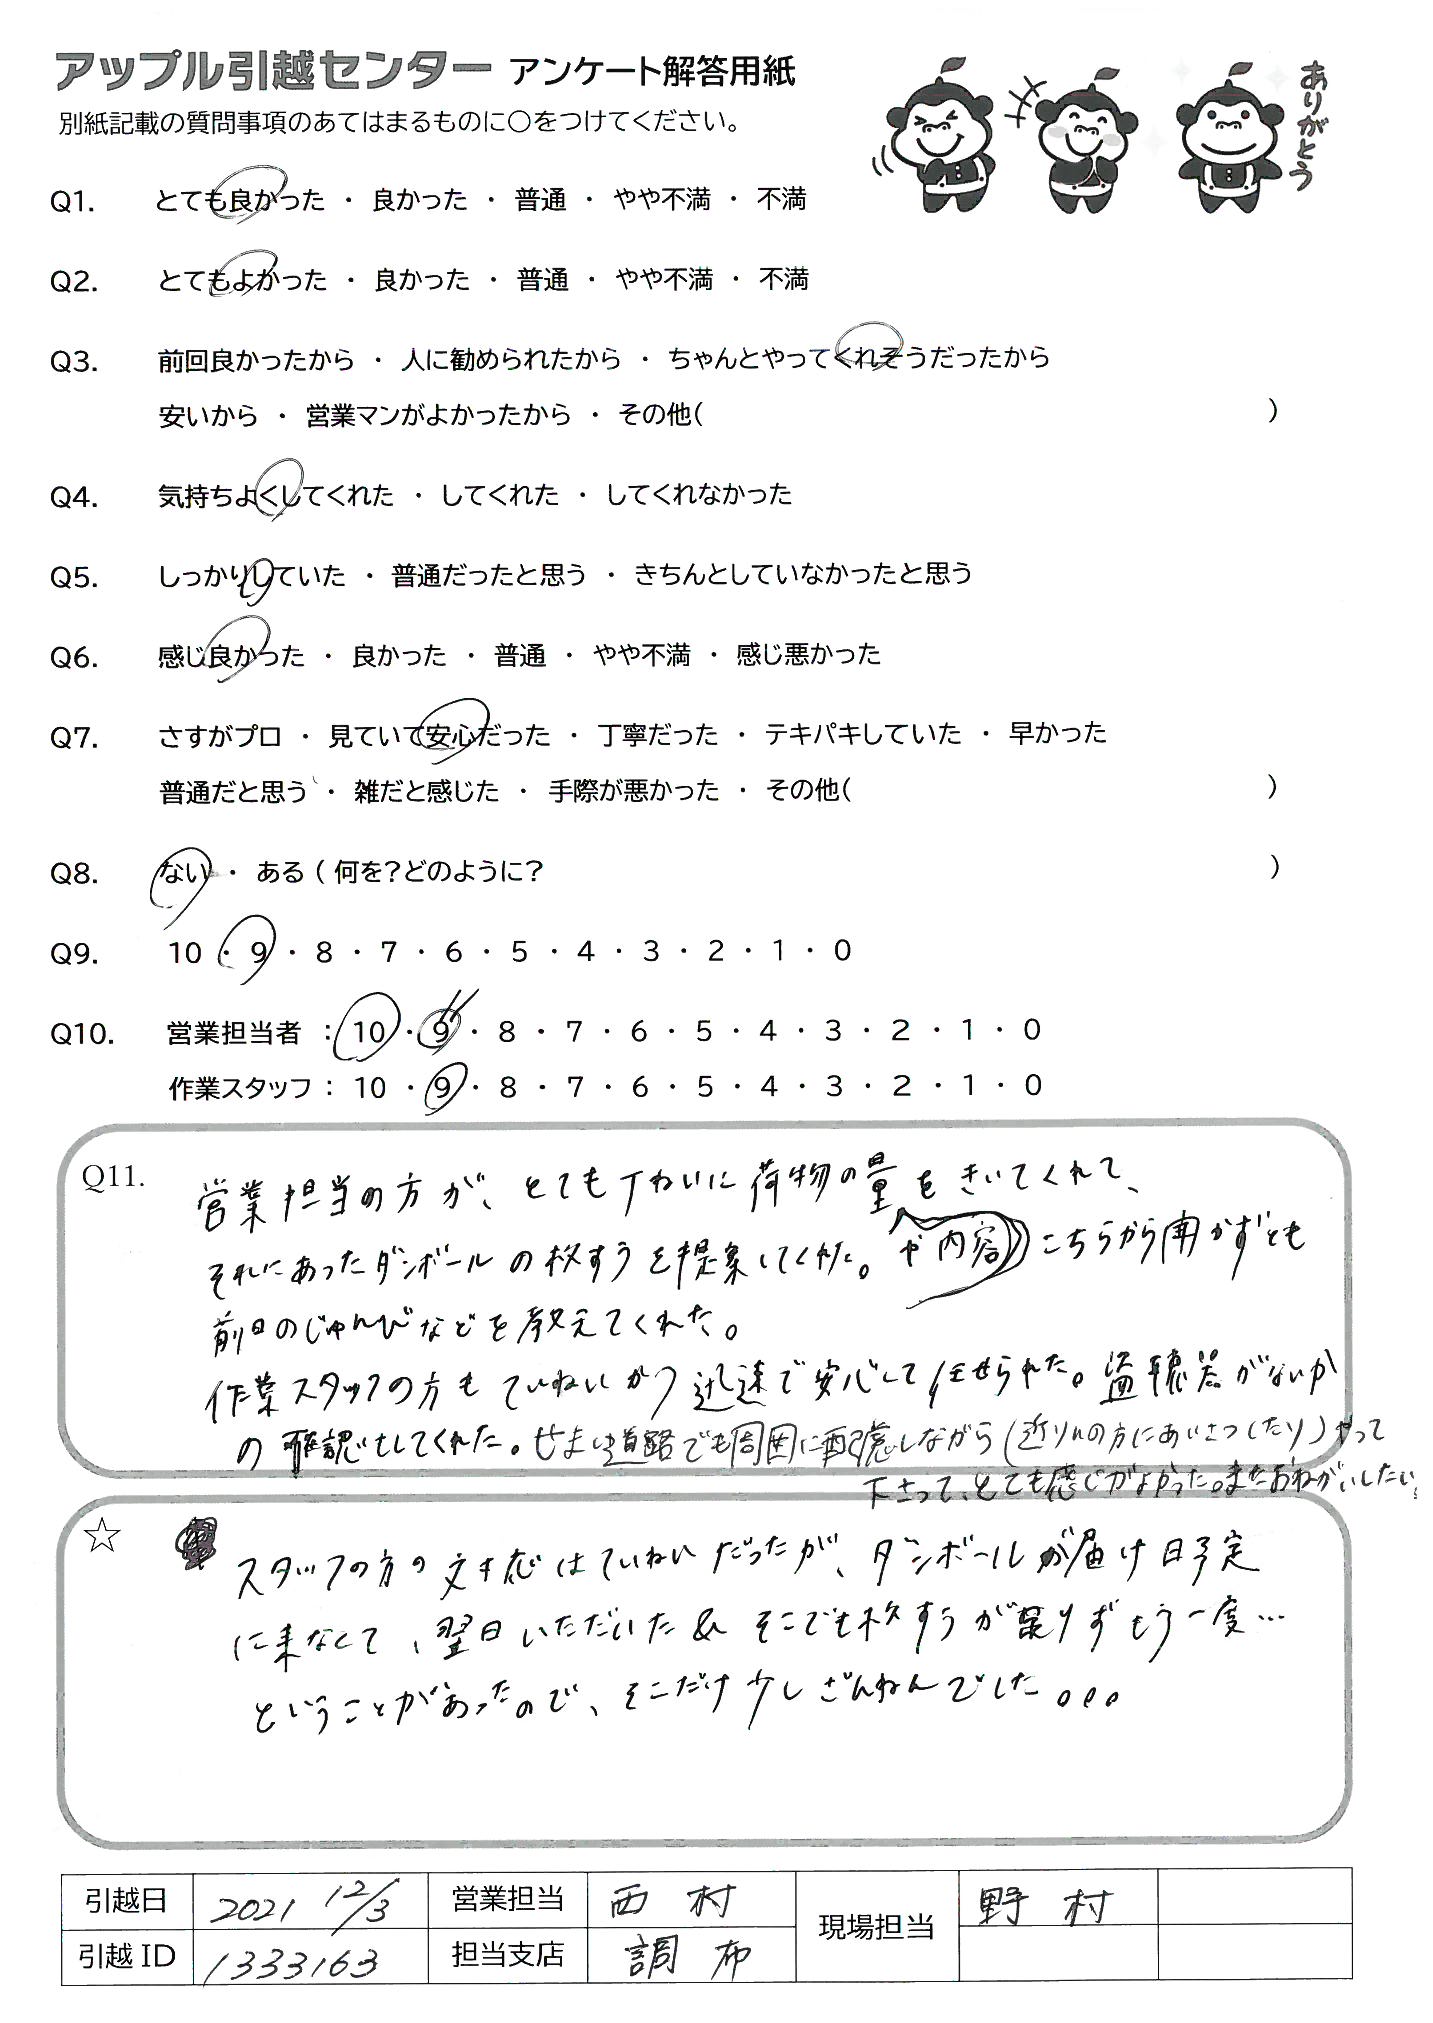 アップル引越センター アンケート解答用紙
別紙記載の質問事項のあてはまるものに○をつけてください。
ありがとう
Q1. とても良かった ・ 良かった ・ 普通 ・ やや不満 ・ 不満
Q2. とてもよかった ・ 良かった ・ 普通 ・ やや不満 ・ 不満
Q3. 前回良かったから ・ 人に勧められたから ・ ちゃんとやってくれそうだったから
安いから ・ 営業マンがよかったから ・ その他( )
Q4. 気持ちよくしてくれた ・ してくれた ・ してくれなかった
Q5. しっかりしていた ・ 普通だったと思う ・ きちんとしていなかったと思う
Q6. 感じ良かった ・ 良かった ・ 普通 ・ やや不満 ・ 感じ悪かった
Q7. さすがプロ ・ 見ていて安心だった ・ 丁寧だった ・ テキパキしていた ・ 早かった
普通だと思う ・ 雑だと感じた ・ 手際が悪かった ・ その他( )
Q8. ない ・ ある ( 何を?どのように? )
Q9. 10 ・ 9 ・ 8 ・ 7 ・ 6 ・ 5 ・ 4 ・ 3 ・ 2 ・ 1 ・ 0
Q10. 営業担当者 : 10 ・ 9 ・ 8 ・ 7 ・ 6 ・ 5 ・ 4 ・ 3 ・ 2 ・ 1 ・ 0
作業スタッフ : 10 ・ 9 ・ 8 ・ 7 ・ 6 ・ 5 ・ 4 ・ 3 ・ 2 ・ 1 ・ 0
Q11. 営業担当の方が、とても丁ねいに荷物の量をきいてくれて、
それにあったダンボールの枚すうを提案してくれた。や内容 こちらから聞かずとも
前日のじゅんびなどを教えてくれた。
作業スタッフの方もていねいかつ迅速で安心して任せられた。盗聴器がないか
の確認もしてくれた。せまい道路でも周囲に配慮しながら(近りんの方にあいさつしたり)やって
下さって、とても感じがよかった。またおねがいしたい。
☆ スタッフの方の対応はていねいだったが、ダンボールが届け日予定
に来なくて、翌日いただいた & そこでも枚すうが足りずもう一度…
ということがあったので、そこだけ少しざんねんでした。。。
引越日 2021 12/3 営業担当 西村 現場担当 野村
引越ID 1333163 担当支店 調布